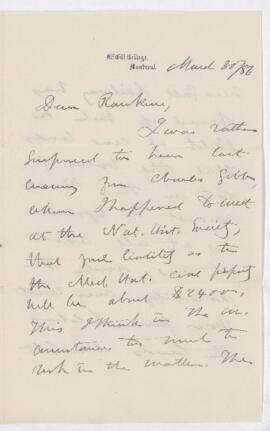 McGill College,
Montreal.
March 30/86
Dear Rankine,
I was rather
surprised to hear last
evening from Charles Gibb,
whom I happened to meet
at the Nat. Hist. Society,
that your liability as to
the Med. Hist. coal property
will be about $2400.
This I think in the cir-
cumstances too much to
risk in the matter. The